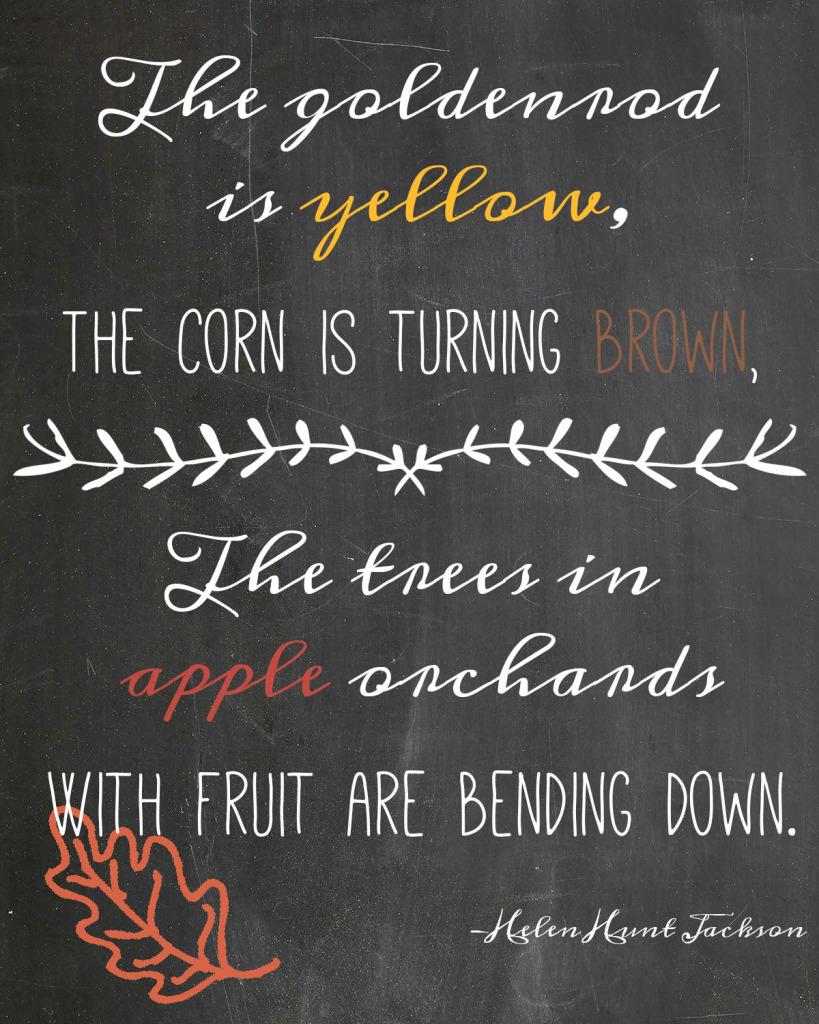 The goldenrod
is yellow,
THE CORN IS TURNING BROWN,
The trees in
apple orchards
WITH FRUIT ARE BENDING DOWN.
-Helen Hunt Jackson